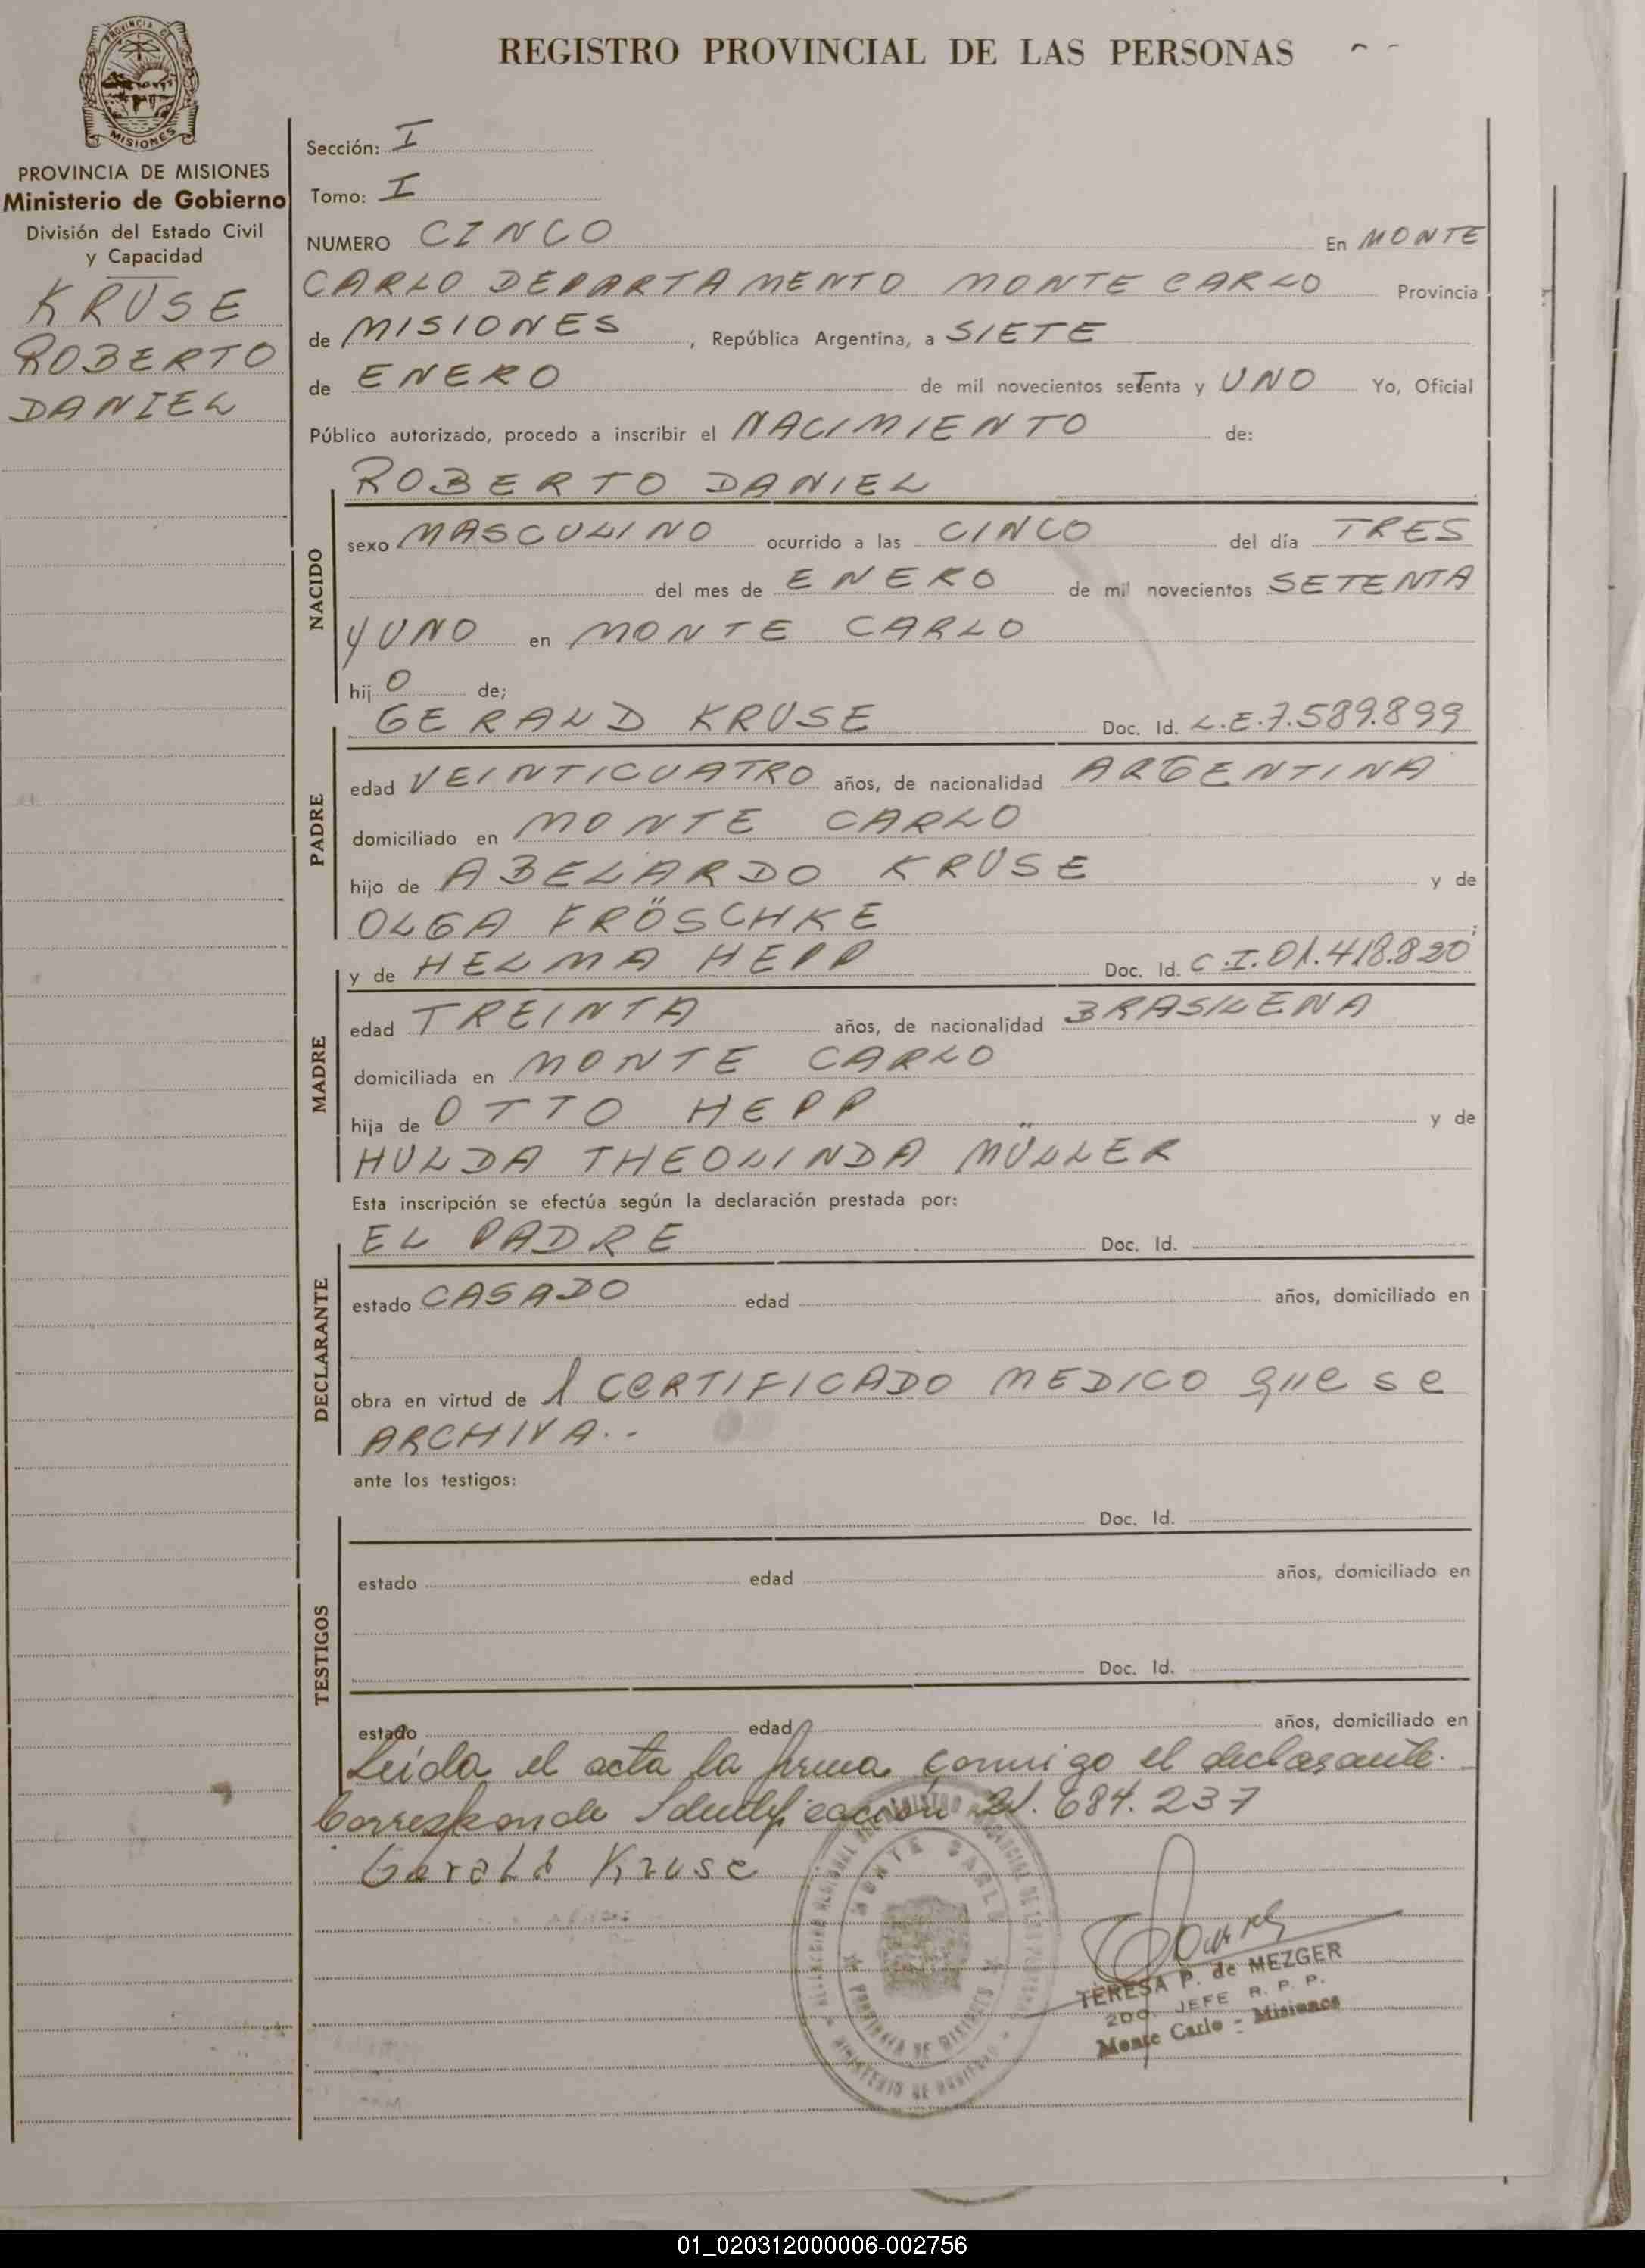 REGISTRO PROVINCIAL DE LAS PERSONAS
PROVINCIA DE
MISIONES
PROVINCIA DE MISIONES
Ministerio de Gobierno
División del Estado Civil
y Capacidad
KRUSE
ROBERTO
DANIEL
Sección: I
Tomo: I
NUMERO CINCO En MONTE
CARLO DEPARTAMENTO MONTE CARLO Provincia
de MISIONES, República Argentina, a SIETE
de ENERO de mil novecientos setenta y UNO Yo, Oficial
Público autorizado, procedo a inscribir el NACIMIENTO de:
NACIDO
ROBERTO DANIEL
sexo MASCULINO ocurrido a las CINCO del día TRES
del mes de ENERO de mil novecientos SETENTA
y UNO en MONTE CARLO
hijO de;
PADRE
GERALD KRUSE Doc. Id. L.E.7.589.899
edad VEINTICUATRO años, de nacionalidad ARGENTINA
domiciliado en MONTE CARLO
hijo de ABELARDO KRUSE y de
OLGA FRÖSCHKE;
MADRE
y de HELMA HEPP Doc. Id. C.I.01.418.820
edad TREINTA años, de nacionalidad BRASILENA
domiciliada en MONTE CARLO
hija de OTTO HEPP y de
HULDA THEOLINDA MÜLLER
Esta inscripción se efectúa según la declaración prestada por:
DECLARANTE
EL PADRE Doc. Id.
estado CASADO edad años, domiciliado en
obra en virtud de l CERTIFICADO MEDICO que se
ARCHIVA.-
ante los testigos:
TESTIGOS
Doc. Id.
estado edad años, domiciliado en
Doc. Id.
estado edad años, domiciliado en
Leida el acta la firma conmigo el declarante.
Corresponde Identificación 21.684.237
Gerald Kruse
MONTE CARLO
PROVINCIA DE MISIONES
TERESA P. de MEZGER
2DO. JEFE R. P. P.
Monte Carlo - Misiones
01_020312000006-002756